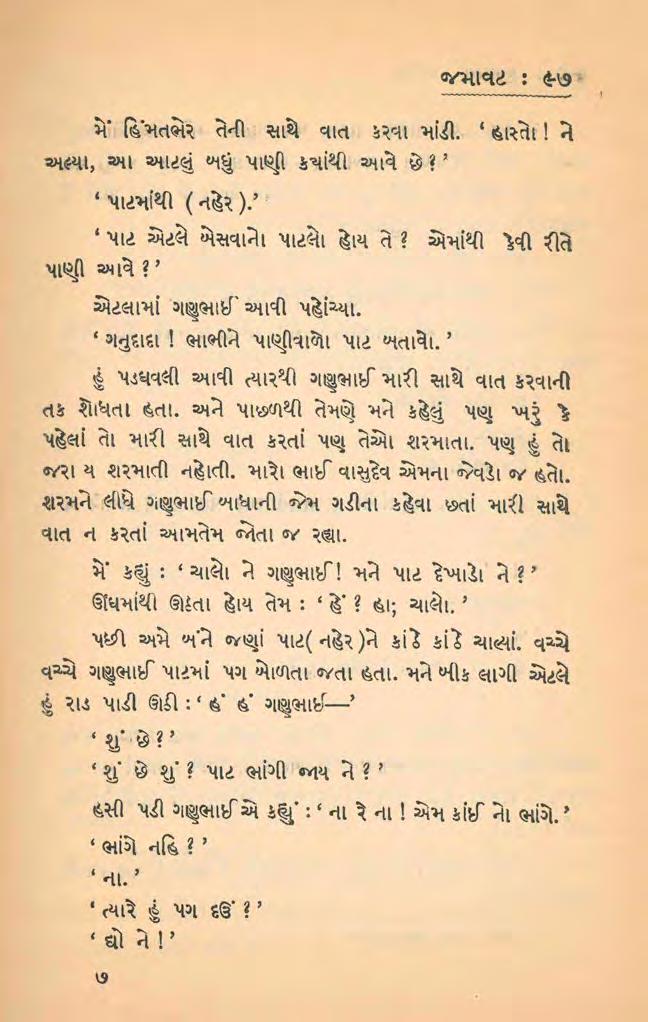 જમાવટ : ૯૭
મેં હિંમતભેર તેની સાથે વાત કરવા માંડી. ‘ હાસ્તો ! ને
અલ્યા, આ આટલું બધું પાણી કયાંથી આવે છે ? ’
‘ પાટમાંથી ( નહેર ).’
‘ પાટ એટલે બેસવાનો પાટલો હોય તે ? એમાંથી કેવી રીતે
પાણી આવે ? ’
એટલામાં ગણુભાઈ આવી પહોંચ્યા.
‘ ગનુદાદા ! ભાભીને પાણીવાળો પાટ બતાવો. ’
હું પડઘવલી આવી ત્યારથી ગણુભાઈ મારી સાથે વાત કરવાની
તક શોધતા હતા. અને પાછળથી તેમણે મને કહેલું પણ ખરું કે
પહેલાં તો મારી સાથે વાત કરતાં પણ તેઓ શરમાતા. પણ હું તો
જરા ય શરમાતી નહોતી. મારો ભાઈ વાસુદેવ એમના જેવડો જ હતો.
શરમને લીધે ગણુભાઈ બાધાની જેમ ગડીના કહેવા છતાં મારી સાથે
વાત ન કરતાં આમતેમ જોતા જ રહ્યા.
મેં કહ્યું : ‘ ચાલો ને ગણુભાઈ ! મને પાટ દેખાડો ને ? ’
ઊંઘમાંથી ઊઠતા હોય તેમ : ‘ હેં ? હા; ચાલો. ’
પછી અમે બંને જણાં પાટ( નહેર )ને કાંઠે કાંઠે ચાલ્યાં. વચ્ચે
વચ્ચે ગણુભાઈ પાટમાં પગ બોળતા જતા હતા. મને બીક લાગી એટલે
હું રાડ પાડી ઊઠી : ‘ હં હં ગણુભાઈ—’
‘ શું છે ? ’
‘ શું છે શું ? પાટ ભાંગી જાય ને ? ’
હસી પડી ગણુભાઈએ કહ્યું : ‘ ના રે ના ! એમ કાંઈ નો ભાંગે. ’
‘ ભાંગે નહિ ? ’
‘ ના. ’
‘ ત્યારે હું પગ દઉં ? ’
‘ દ્યો ને ! ’
૭